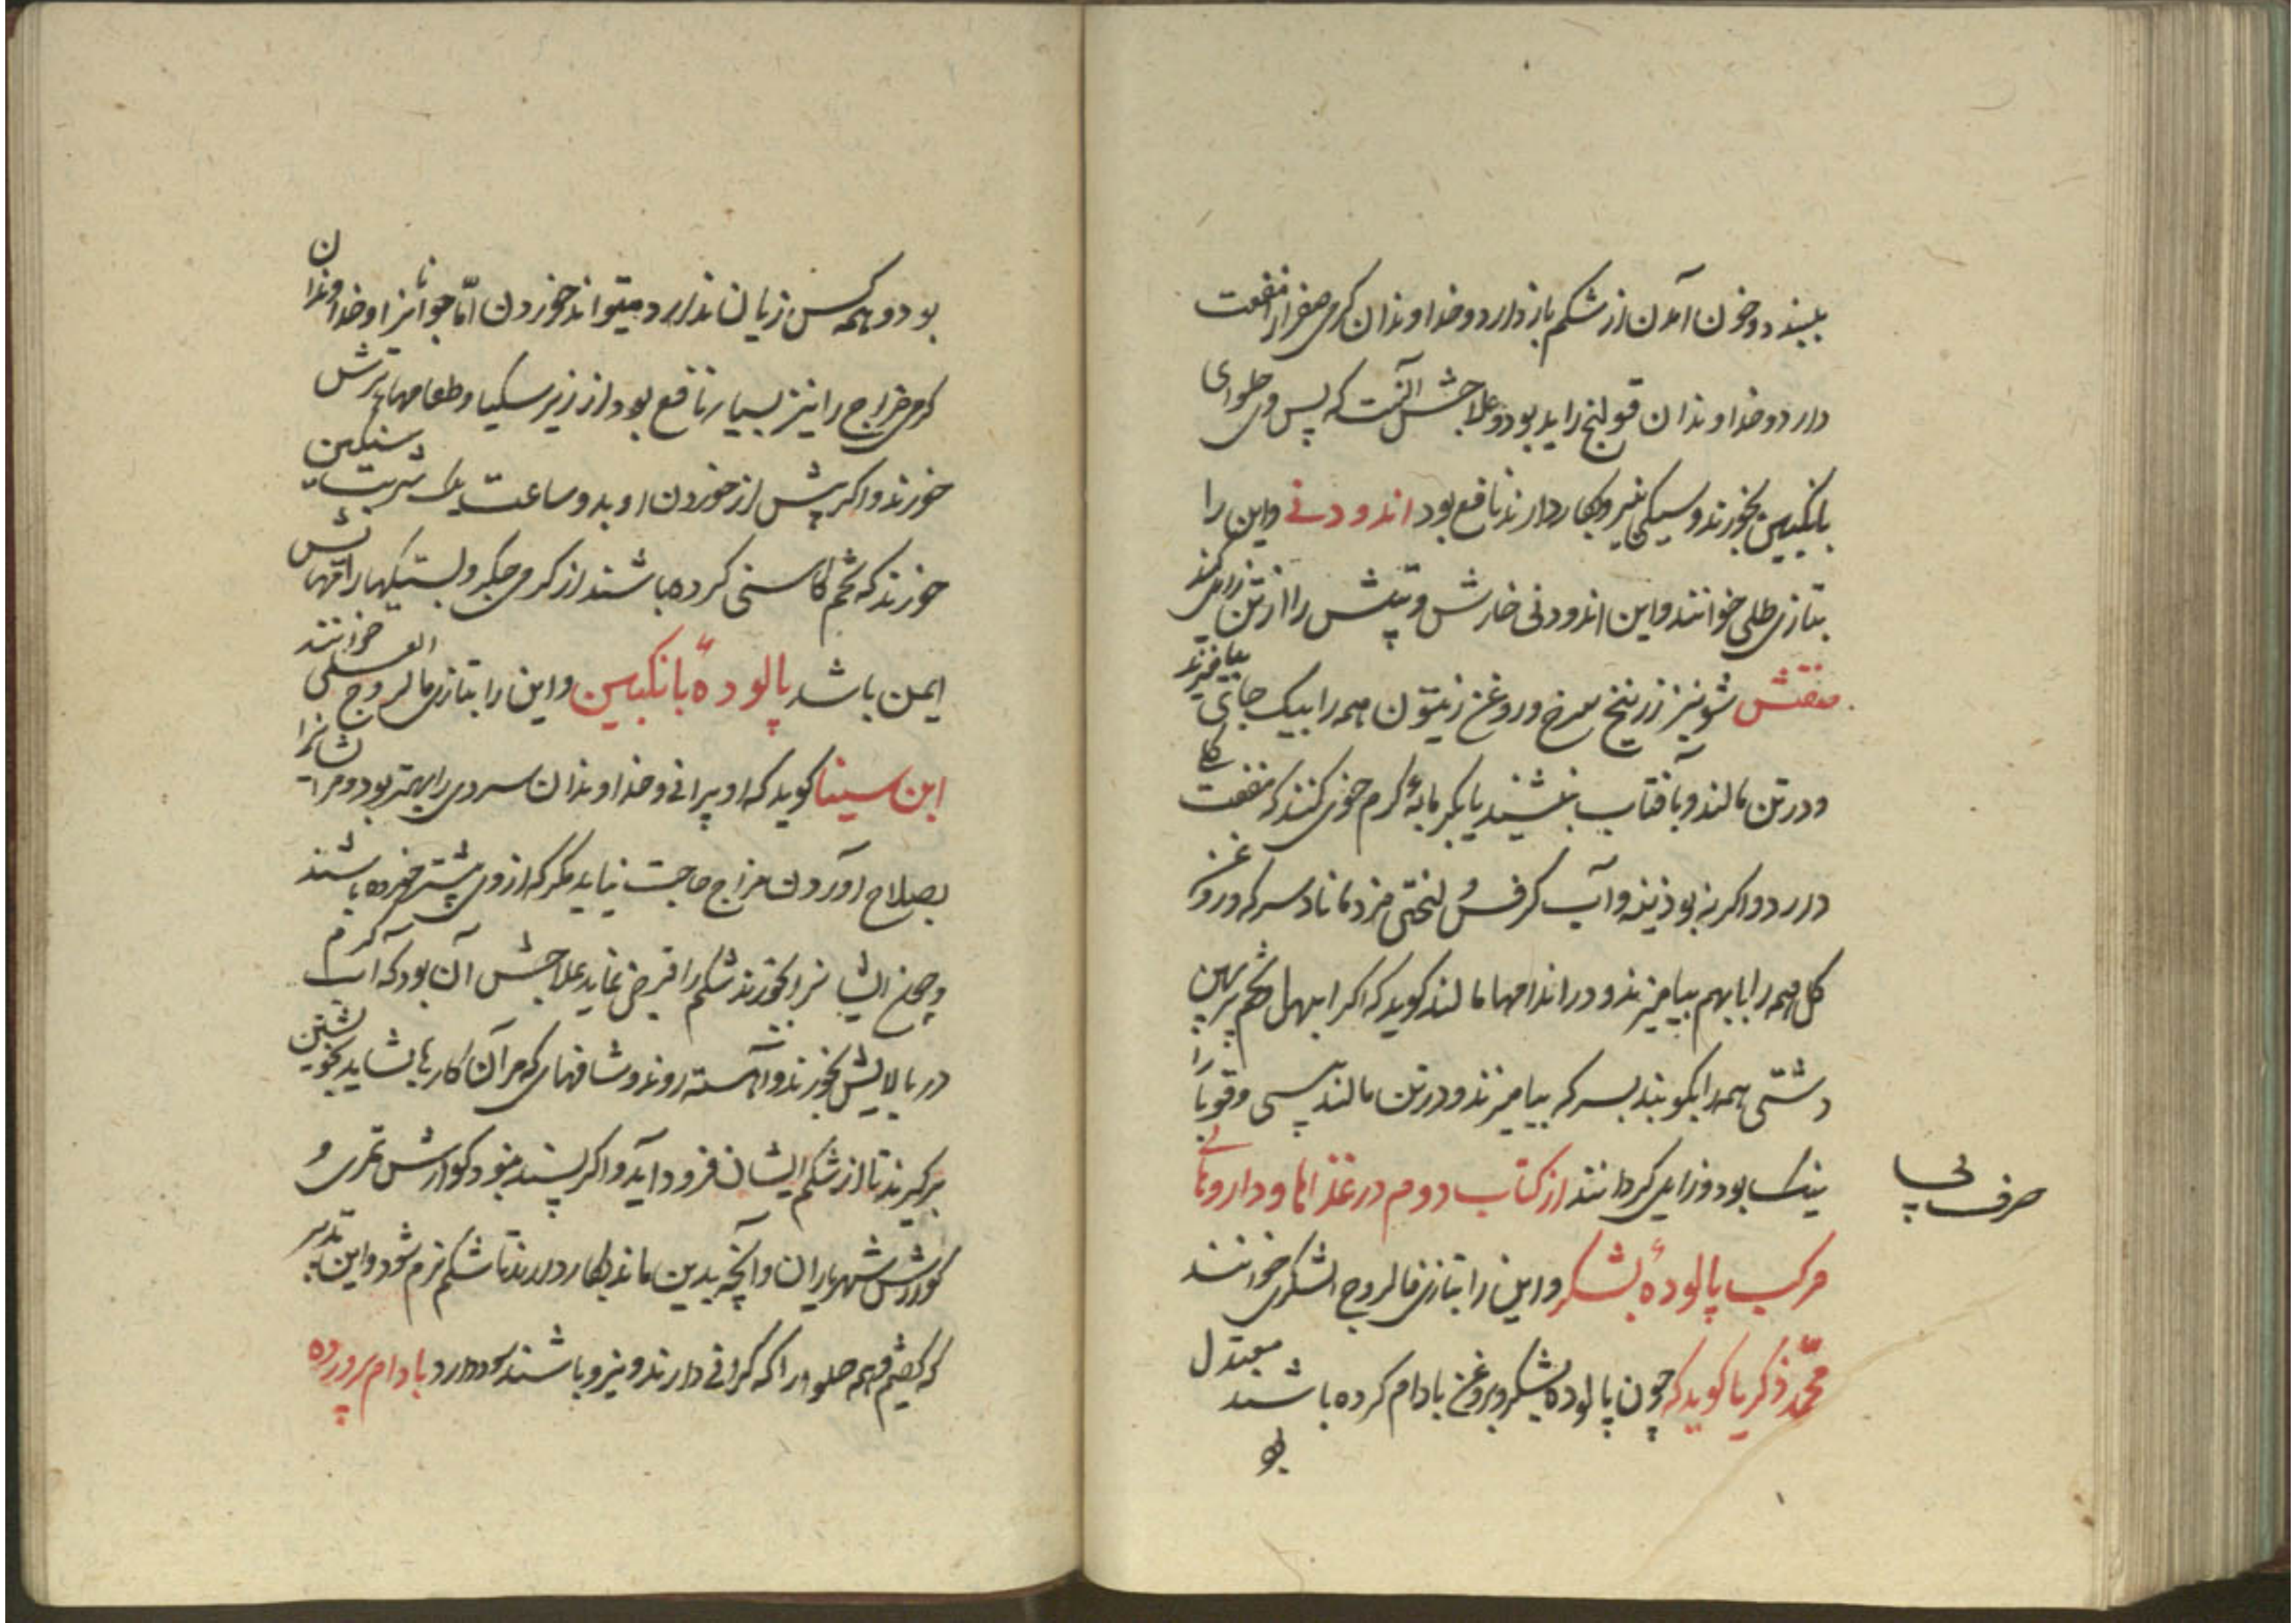 ببندد و خون آمدن از شکم باز دارد و خداوندان کرمی صفرا را منفعت
دارد و خداوندان قولنج را بد بود و علاجش آنست که پس وی حلوای
بانکبین بخورند و سیکی نیز بکار دارند نافع بود اندودنی و این را
بتازی طلی خوانند و این اندودنی خارش و تپش را از تن زایل کند
منقش شونیز زرنیخ سرخ و روغن زیتون همه را بیک جای بیامیزند
و در تن مالند و بآفتاب بنشیند یا بکرمابهٔ کرم خوی کنند که منفعت
دارد و اکر نه بوذینه و آب کرفس لختی مزد مانا و سرکه و روغن
کل همه را باهم بیامیزند و در اندامها مالند کوید که اکر ابهل تخم پرپهن
دشتی همه را بکوبند بسرکه بیامیزند و در تن مالند پیسی و قوبا را
نیک بود و زایل کردانند از کتاب دوم در غذاها و داروهائی
حرف پی
مرکب پالودهٔ بشکر و این را بتازی فالوذج السکری خوانند
محمّد ذکریا کوید که چون پالوده بشکر و بروغن بادام کرده باشند معتدل
بود
بود و همه کس زیان ندارد میتواند خوردن امّا جوانانرا و خداوندان
کرمی مزاج را نیز بسیار نافع بود از زیر سکبا و طعامهاء ترش
خورند و اکر پیش از خوردن او بدو ساعت یک شربت سنکبین
خورند که تخم کاسنی کرده باشند از کرمی جکر و بستیکیها را
ایمن باشد پالودهٔ بانکبین و این را بتازی فالوذج العسلی خوانند
ابن سینا کوید که او پیرانی و خداوندان سردی را بهتر بود و مر ایشانرا
بصلاح آوردن مزاج حاجت نیاید مکر که از وی بیشتر خورده باشند
و چون ایشانرا بخورند شکم را قبض نماید علاجش آن بود که آب کرم
در بالایش بخورند و آهسته روند و شافهای که مر آن کار را بشاید بخویشتن
برکیرند تا از شکم ایشان فرود آید و اکر پسند نبود کوارش تمری و
کوارش شهریاران و آنچه بدین ماند بکار دارند تا شکم نرم شود و این تدبیر
که کفتیم همه حلوا را که کرانی دارند و نیرو باشند سود دارد بادام پرورده